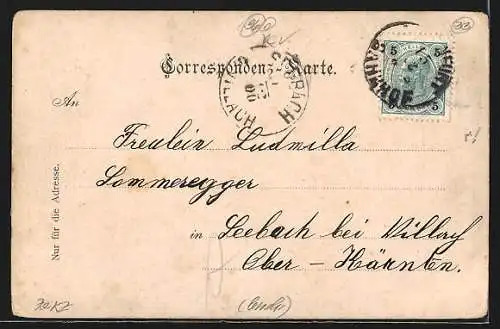 Correspondenz-Karte.
An
Fräulein Ludmilla
Sommeregger
in Seebach bei Villach
Ober-Kärnten.
Nur für die Adresse.
5 5
5
BAHNHOF
SEEBACH